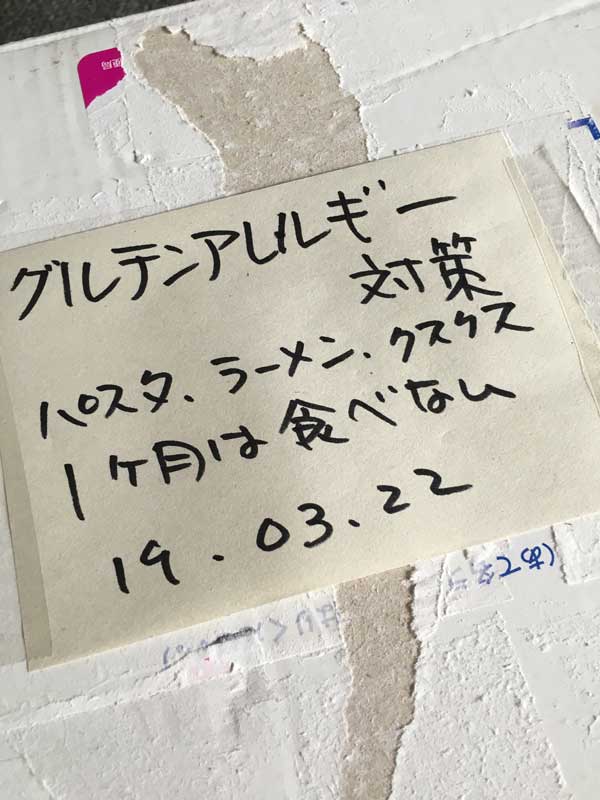 グルテンアレルギー
対策
パスタ、ラーメン、クスクス
1ヶ月は食べない
19.03.22